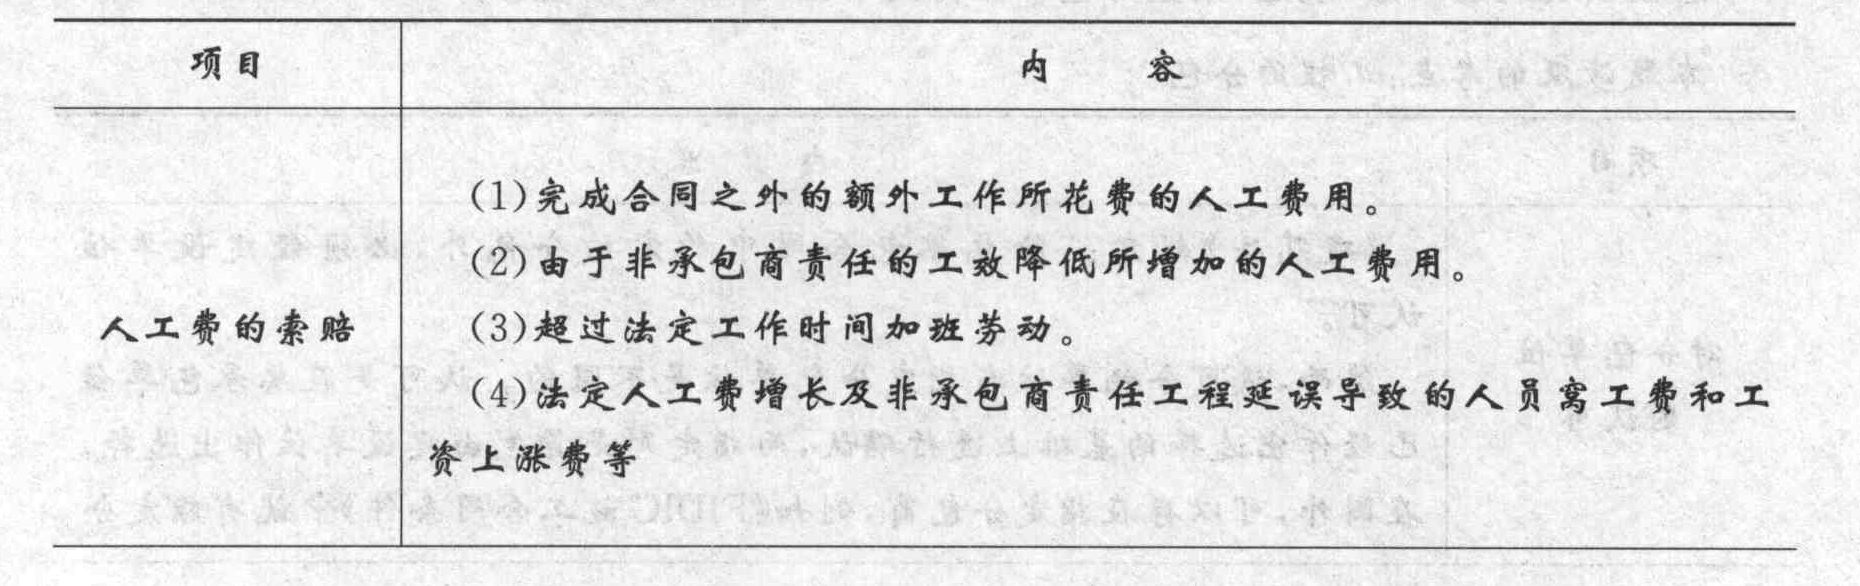 项目
内 容
人工费的索赔
(1)完成合同之外的额外工作所花费的人工费用。
(2)由于非承包商责任的工效降低所增加的人工费用。
(3)超过法定工作时间加班劳动。
(4)法定人工费增长及非承包商责任工程延误导致的人员窝工费和工
资上涨费等